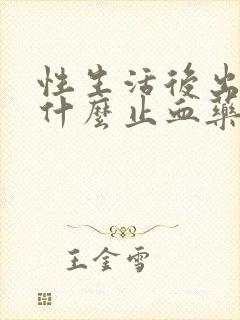 性生活後出
什麼止血藥
王金雪